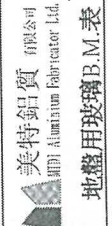 美特鋁質有限公司
MIDI Aluminium Fabricator Ltd.
地盤用玻璃B.M.表